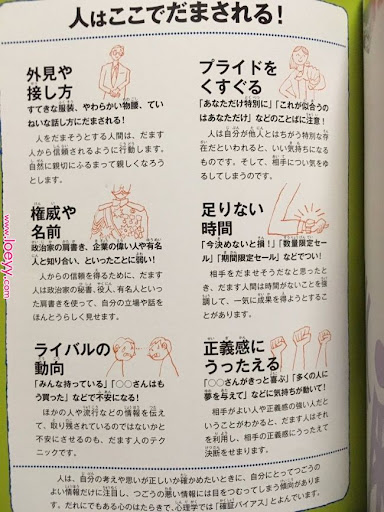 人はここでだまされる！
外見や
接し方
すてきな服装、やわらかい物腰、てい
ねいな話し方にだまされる！
人をだまそうとする人間は、だます
人から信頼されるように行動します。
自然に親切にふるまって親しくなろう
とします。
プライドを
くすぐる
「あなただけ特別に」「これが似合うの
はあなただけ」などのことばに注意！
人は自分が他人とはちがう特別な存
在だといわれると、いい気持ちになる
ものです。そして、相手につい気をゆ
るしてしまうのです。
権威や
名前
政治家の肩書き、企業の偉い人や有名
人と知り合い、といったことに弱い！
人からの信頼を得るために、だます
人は政治家の秘書、役人、有名人といっ
た肩書きを使って、自分の立場や話を
ほんとうらしく見せます。
足りない
時間
「今決めないと損！」「数量限定セー
ル」「期間限定セール」などでつい！
相手をだませそうだなと思ったと
き、だます人間は時間がないことを強
調して、一気に成果を得ようとするこ
とがあります。
ライバルの
動向
「みんな持っている」「○○さんはも
う買った」などで不安になる！
ほかの人や流行などの情報を伝え
て、取り残されているのではないかと
不安にさせるのも、だます人のテク
ニックです。
正義感に
うったえる
「○○さんがきっと喜ぶ」「多くの人に
夢を与えて」などに気持ちが動いて！
相手がよい人や正義感の強い人だと
いうことがわかると、だます人はそれ
を利用し、相手の正義感にうったえて
決断をせまります。
人は、自分の考えや思いが正しいか確かめたいときに、自分にとってつごうの
よい情報だけに注目し、つごうの悪い情報には目をつむってしまう傾向がありま
す。だれにでもある心のはたらきで、心理学では「確証バイアス」とよんでいます。
www.joeyy.com